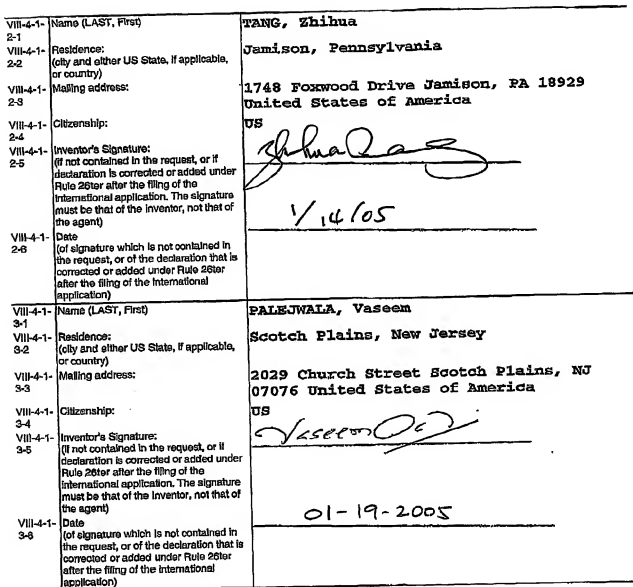 VIII-4-1- Name (LAST, First) TANG, Zhihua
2-1
VIII-4-1- Residence: Jamison, Pennsylvania
2-2 (city and either US State, if applicable,
or country)
VIII-4-1- Mailing address: 1748 Foxwood Drive Jamison, PA 18929
2-3 United States of America
VIII-4-1- Citizenship: US
2-4
VIII-4-1- Inventor's Signature:
2-5 (if not contained in the request, or if
declaration is corrected or added under
Rule 26ter after the filing of the
international application. The signature
must be that of the inventor, not that of
the agent) 1/14/05
VIII-4-1- Date
2-6 (of signature which is not contained in
the request, or of the declaration that is
corrected or added under Rule 26ter
after the filing of the international
application)
VIII-4-1- Name (LAST, First) PALEJWALA, Vaseem
3-1
VIII-4-1- Residence: Scotch Plains, New Jersey
3-2 (city and either US State, if applicable,
or country)
VIII-4-1- Mailing address: 2029 Church Street Scotch Plains, NJ
3-3 07076 United States of America
VIII-4-1- Citizenship: US
3-4
VIII-4-1- Inventor's Signature: Vaseem
3-5 (if not contained in the request, or if
declaration is corrected or added under
Rule 26ter after the filing of the
international application. The signature
must be that of the inventor, not that of
the agent) 01-19-2005
VIII-4-1- Date
3-6 (of signature which is not contained in
the request, or of the declaration that is
corrected or added under Rule 26ter
after the filing of the international
application)